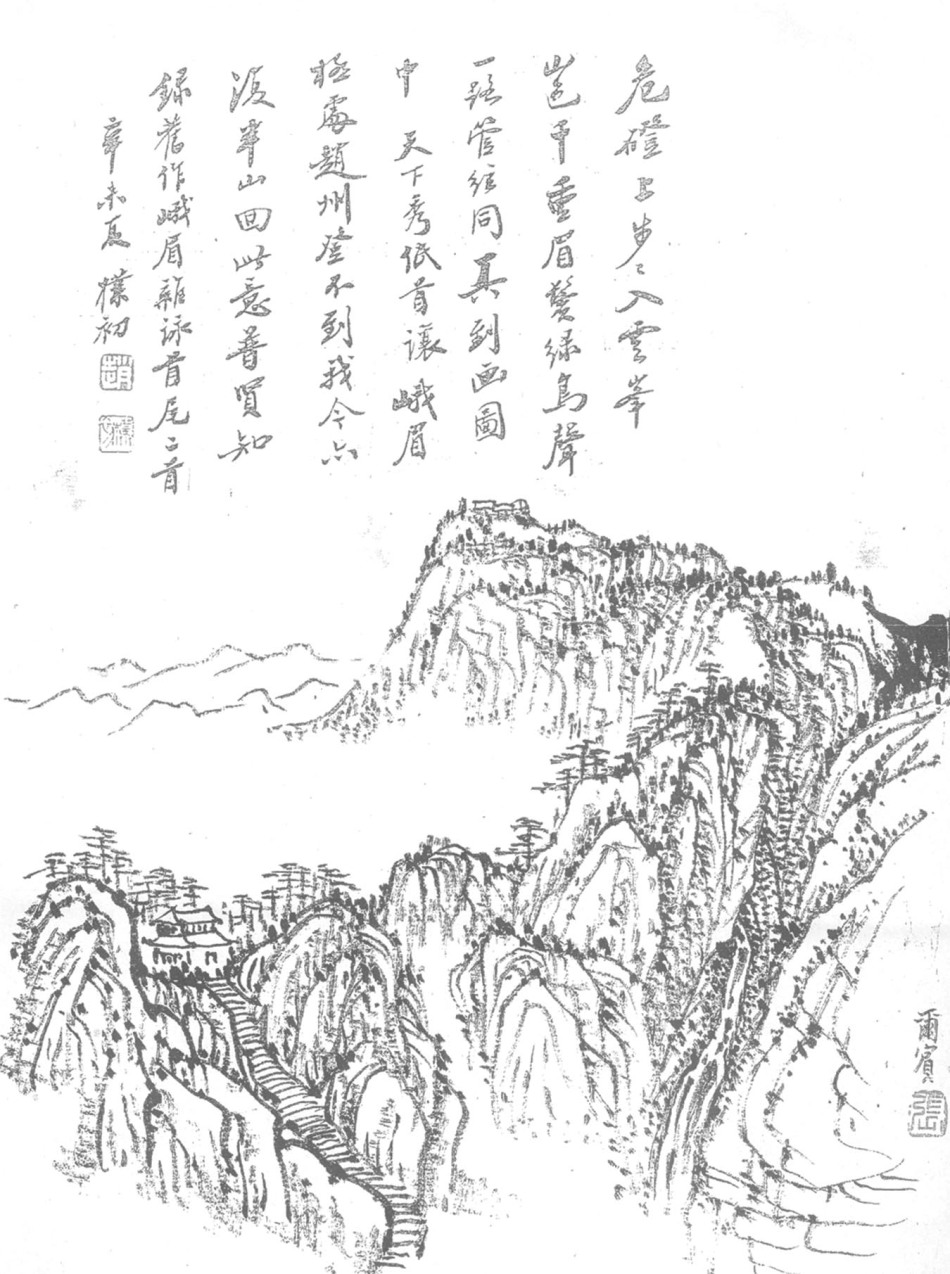 危磴上步〻入雲峯
山色千重眉鬢綠鳥聲
一路管絃同真到画圖
中 天下秀低首讓峨眉
極處趙州登不到我今亦
復半山回此意普賢知
錄舊作峨眉雜詠首尾二首
辛未夏 樸初
趙
爾賓
張